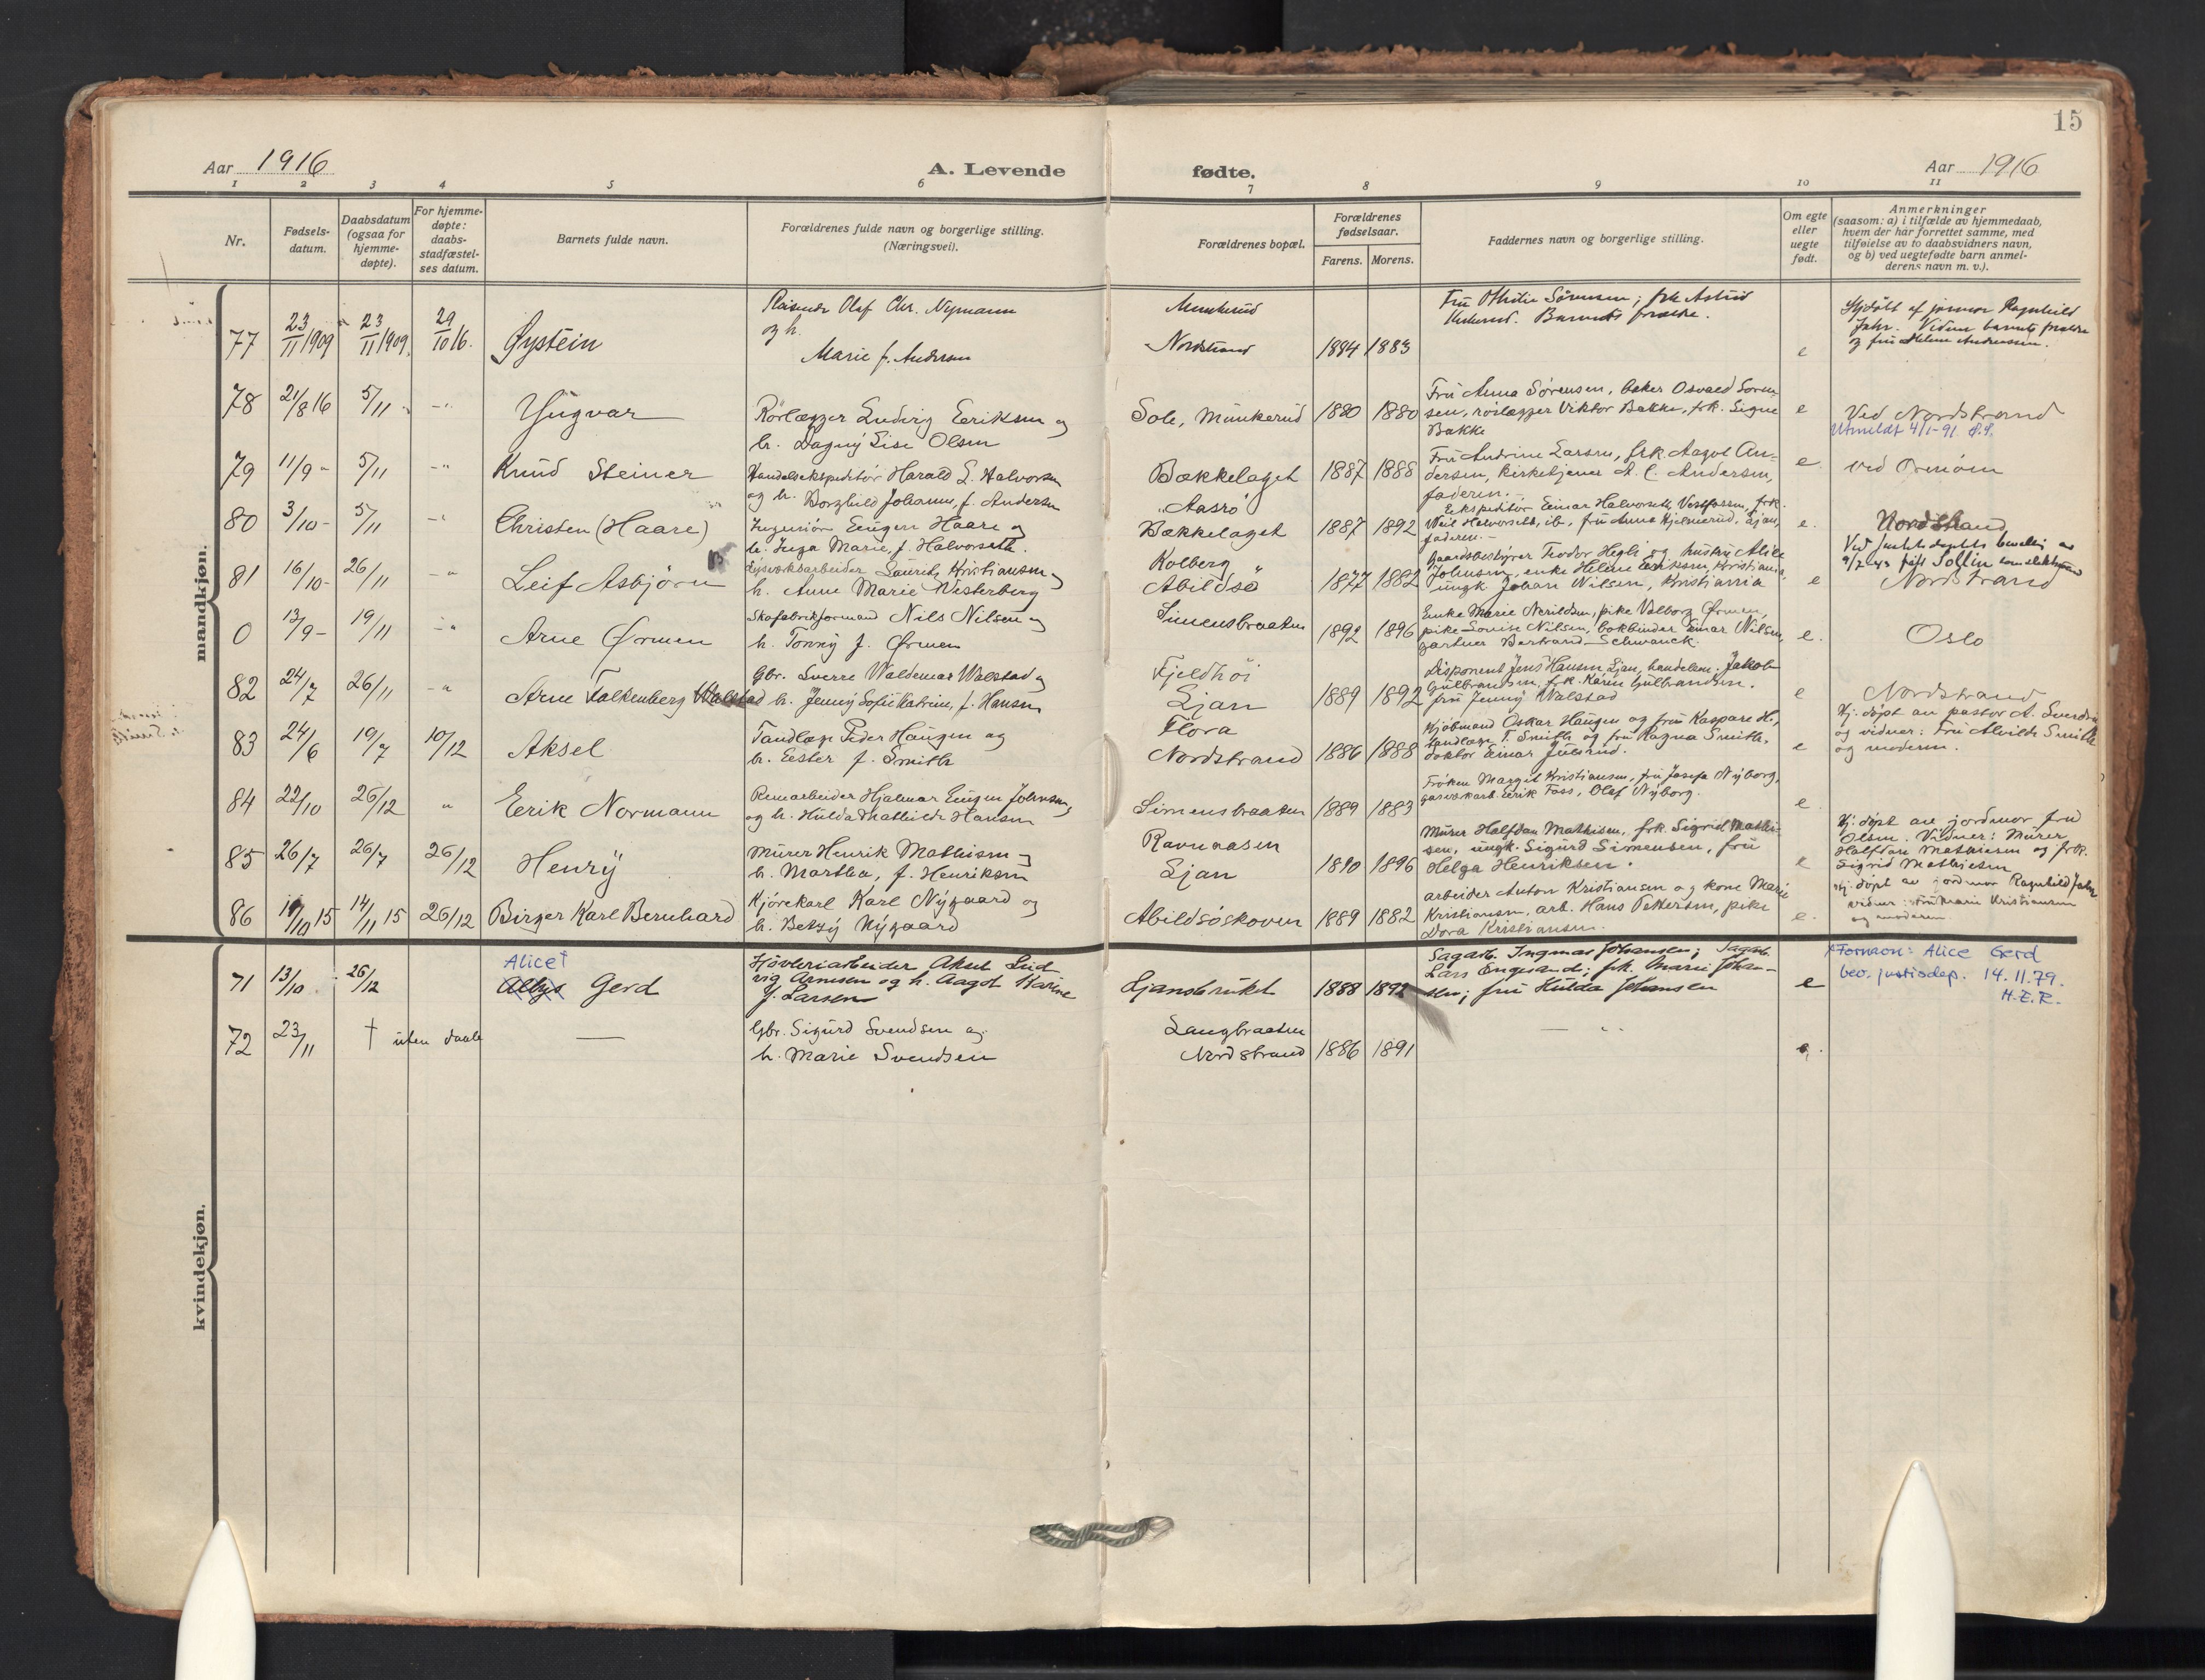 15
Aar 1916
A. Levende
fødte.
Aar 1916
1 2 3 4 5 6 7 8 9 10 11
Nr.
Fødsels-
datum.
Daabsdatum
(ogsaa for
hjemme-
døpte).
For hjemme-
døpte:
daabs-
stadfæstel-
ses datum.
Barnets fulde navn.
Forældrenes fulde navn og borgerlige stilling.
(Næringsvei).
Forældrenes bopæl.
Forældrenes
fødselsaar.
Farens. Morens.
Faddernes navn og borgerlige stilling.
Om egte
eller
uegte
født.
Anmerkninger
(saasom: a) i tilfælde av hjemmedaab,
hvem der har forrettet samme, med
tilføielse av to daabsvidners navn,
og b) ved uegtefødte barn anmel-
derens navn m. v.).
mandkjøn.
77 23/11 1909 23/11 1909 29/10 16. Øystein
Olaf Chr. Nymann
og h.
Marie f. Andersen
Munkerud
Nordstrand 1884 1883
Fru Othilie Sørensen; frk Astrid
Barnets forældre.
e
Hjdøbt af jormor Ragnhild
Jahr. Vidner barnets forældre
og fru Helene Andreassen.
78 21/8 16 5/11 - -"- Yngvar
Rørlægger Ludvig Eriksen og
h. Dagny Lise Olsen
Sole, Munkerud 1880 1880
Fru Anna Sørensen, baker Osvald Søren-
sen, rørlægger Viktor Bakke, frk. Signe
Bakke
e
Ved Nordstrand
Utmeldt 4/1-91
79 11/9 - 5/11 -"- Knud Steinar
Handelsekspeditør Harald L. Halvorsen
og h. Borghild Johanne, f. Andersen
Bækkelaget 1887 1888
Fru Andrine Larsen, frk. Aagot An-
dersen, kirketjener A. C. Andersen,
faderen.
e.
ved Ormøen
80 3/10 - 5/11 -"- Christen (Haare)
Ingeniør Eugen Haare og
h. Inga Marie, f. Halvorseth.
Aasrø
Bækkelaget 1887 1892
Ekspeditør Einar Halvorseth, Vestfossen, frk.
Halvorseth, ib., fru Anna Hjelmerud, Ljan,
faderen. -
e.
Nordstrand
81 16/10 - 26/11 -"- Leif Asbjørn
Lysverksarbeider Lauritz Kristiansen og
h. Anne Marie Westerberg
Kolberg
Abildsø 1877 1882
Gaardsbestyrer Teodor Hegli og hustru Alice
Johnsen, enke Helene Eriksen, Kristiania,
ungk. Johan Nilsen, Kristiania
e
Ved justitsdeptets bevilling av
9/2 43 fått Sollin som slektsnavn
Nordstrand
0 13/9 - 19/11 -"- Arne Ørmen
Skofabrikformand Nils Nilsen og
h. Tonny f. Ørmen
Simensbraaten 1892 1896
Enke Marie Nerildsen, pike Valborg Ørmen,
pike Louise Nilsen, bokbinder Einar Nilsen,
gartner Bertrand Schwanck.
e.
Oslo
82 24/7 26/11 -"- Arne Falkenberg Walstad
Gbr. Sverre Waldemar Walstad og
h. Jenny Sofie Katrine, f. Hansen
Fjeldhøi
Ljan 1889 1892
Disponent Jens Hansen, Ljan, handelsm. Jakob
Gulbrandsen, frk. Karen Gulbrandsen.
fru Jenny Walstad
e
Nordstrand
83 24/6 19/7 10/12 Aksel
Tandlæge Peder Haugen og
h. Ester f. Smith
Flora
Nordstrand 1886 1888
Kjøbmand Oskar Haugen og frue Kaspare H.,
tandlæge T. Smith og fru Ragna Smith,
doktor Einar Juelsrud.
e
Hj. døpt av pastor A. Sverdrup
og vidner: Fru Alvilde Smith
og moderen.
84 22/10 26/12 " Eerik Normann
Remarbeider Hjalmar Eugen Johnsen,
og h. Hulda Mathilde Hansen
Simensbraaten 1889 1883
Frøken Margit Kristiansen, fru Josefa Nyborg,
gasverkarb. Eerik Foss, Olaf Nyborg.
e.
85 26/7 26/7 26/12 Henry
Murer Henrik Mathisen og
h. Martha, f. Henriksen
Ravnaasen
Ljan 1890 1896
Murer Halfdan Mathisen, frk. Sigrid Mathi-
sen, ungk. Sigurd Simensen, fru
Helga Henriksen.
e
Hj. døpt av jordmor fru
Olsen. Vidner: Murer
Halfdan Mathiesen og frk.
Sigrid Mathiesen
86 19/10 15 14/11 15 26/12 Birger Karl Bernhard
Kjørekarl Karl Nygaard og
h. Betzy Nygaard
Abildsøskoven 1889 1882
arbeider Anton Kristiansen og kone Marie
Kristiansen, arb. Hans Pettersen, pike
Dora Kristiansen.
e.
Hj. døpt av jordmor Ragnhild Jahr
vidner: Fru Marie Kristiansen
og moderen
kvindekjøn.
71 13/10 26/12 Alice†
Allys Gerd
Høvleriarbeider Aksel Lud-
vig Arnesen og h. Aagot Karine
f. Larsen
Ljansbruket 1888 1892
Sagarb. Ingmar Johansen; Sagarb.
Lars Engesand; frk. Marie Johan-
sen; fru Hulda Johansen
e
†Fornavn: Alice Gerd
bev. justisdep. 14.11.79.
H.E.R.
72 23/11 † uten daab —
Gbr. Sigurd Svendsen og
h. Marie Svendsen
Langbraaten
Nordstrand 1886 1891
— " -
e.